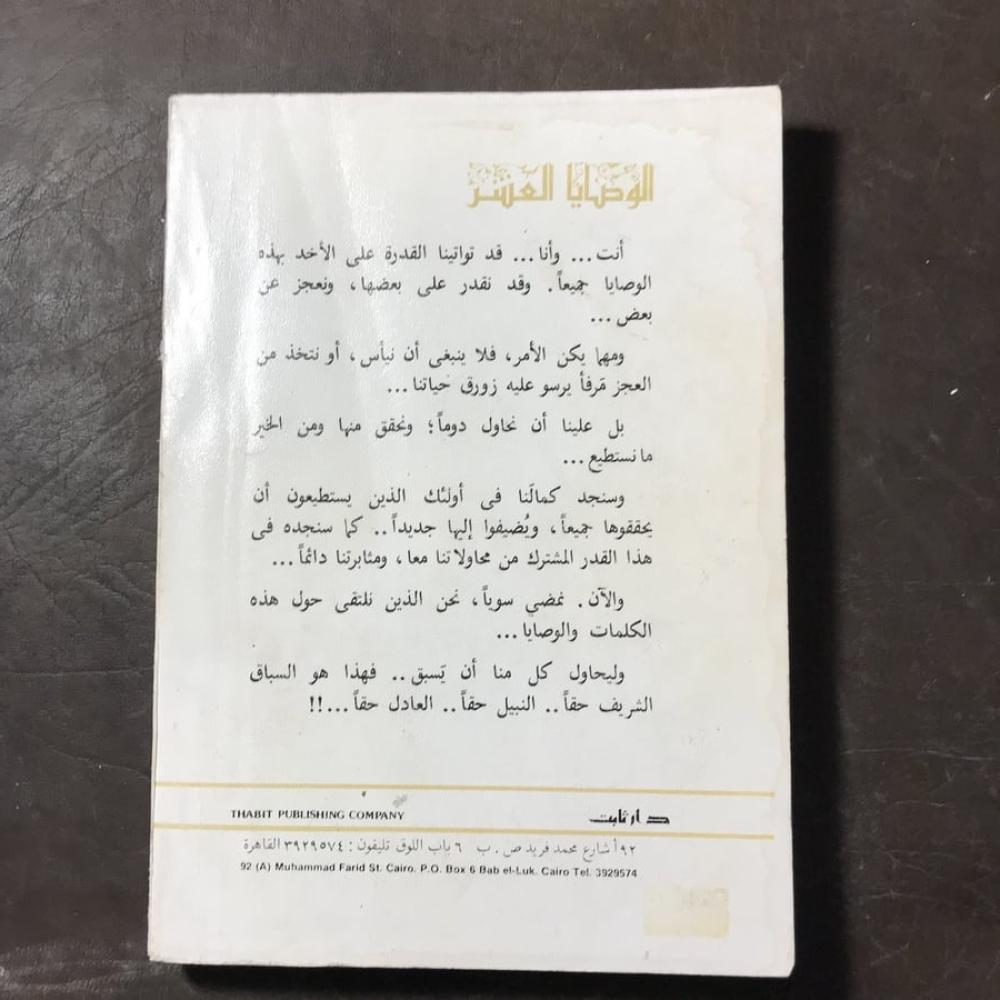 الوصايا العشر
أنت... وأنا... قد تواتينا القدرة على الأخذ بهذه
الوصايا جميعاً. وقد نقدر على بعضها، ونعجز عن
بعض...
ومهما يكن الأمر، فلا ينبغى أن نيأس، أو نتخذ من
العجز مَرفأ يرسو عليه زورق حياتنا...
بل علينا أن نحاول دوماً؛ ونحقق منها ومن الخير
ما نستطيع...
وسنجد كمالَنا فى أولئك الذين يستطيعون أن
يحققوها جميعاً، ويُضيفوا إليها جديداً.. كما سنجده فى
هذا القدر المشترك من محاولاتنا معا، ومثابرتنا دائماً...
والآن. نمضي سوياً، نحن الذين نلتقى حول هذه
الكلمات والوصايا...
وليحاول كل منا أن يَسبق.. فهذا هو السباق
الشريف حقاً.. النبيل حقاً.. العادل حقاً...!!
THABIT PUBLISHING COMPANY دار ثابت
٩٢ أ شارع محمد فريد ص. ب ٦ باب اللوق تليفون: ٣٩٢٩٥٧٤ القاهرة
92 (A) Muhammad Farid St. Cairo. P.O. Box 6 Bab el-Luk. Cairo Tel. 3929574